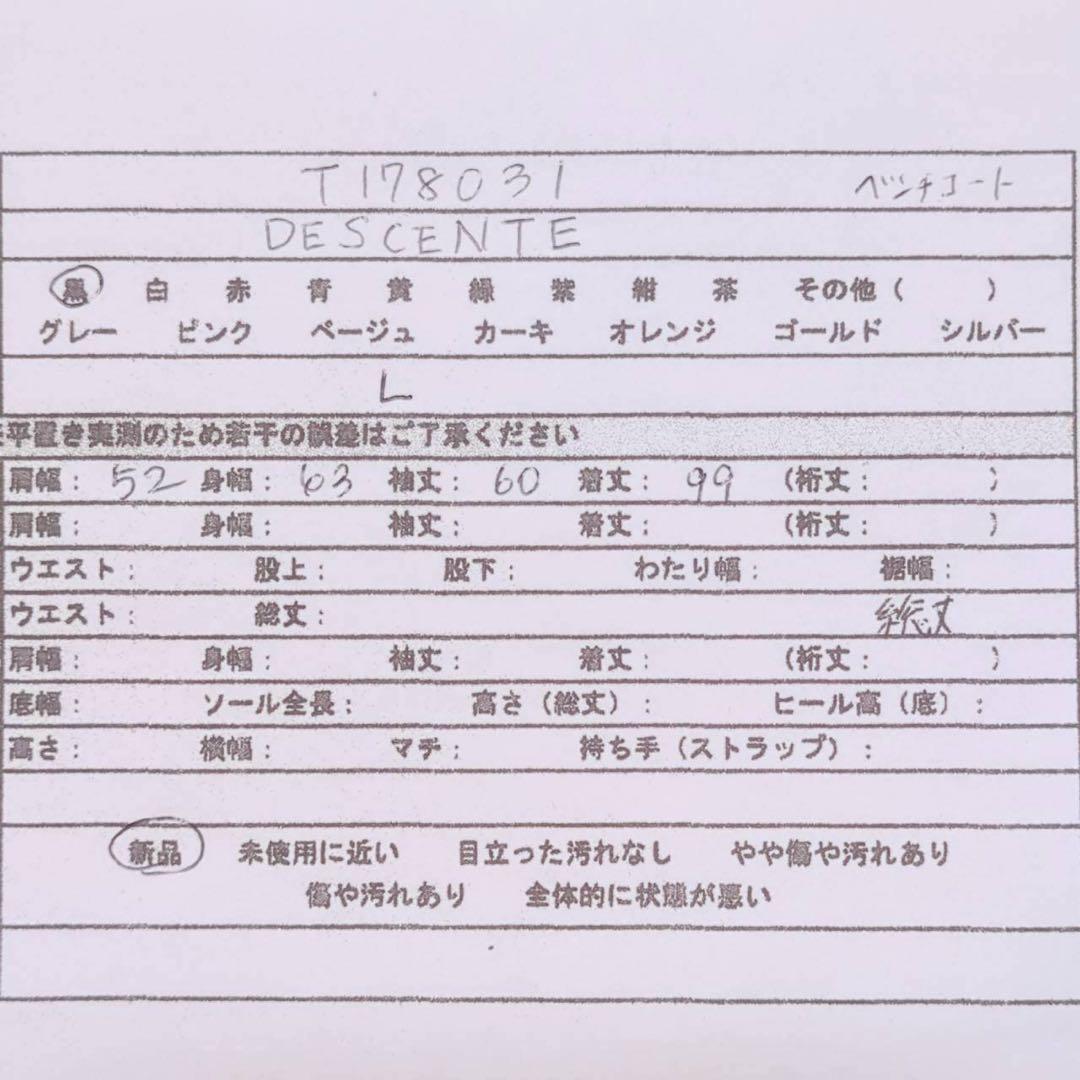 T178031 ベンチコート
DESCENTE
黒 白 赤 青 黄 緑 紫 紺 茶 その他（ ）
グレー ピンク ベージュ カーキ オレンジ ゴールド シルバー
L
平置き実測のため若干の誤差はご了承ください
肩幅： 52 身幅： 63 袖丈： 60 着丈： 99 （裄丈： ）
肩幅： 身幅： 袖丈： 着丈： （裄丈： ）
ウエスト： 股上： 股下： わたり幅： 裾幅：
ウエスト： 総丈： 総丈
肩幅： 身幅： 袖丈： 着丈： （裄丈： ）
底幅： ソール全長： 高さ（総丈）： ヒール高（底）：
高さ： 横幅： マチ： 持ち手（ストラップ）：
新品 未使用に近い 目立った汚れなし やや傷や汚れあり
傷や汚れあり 全体的に状態が悪い